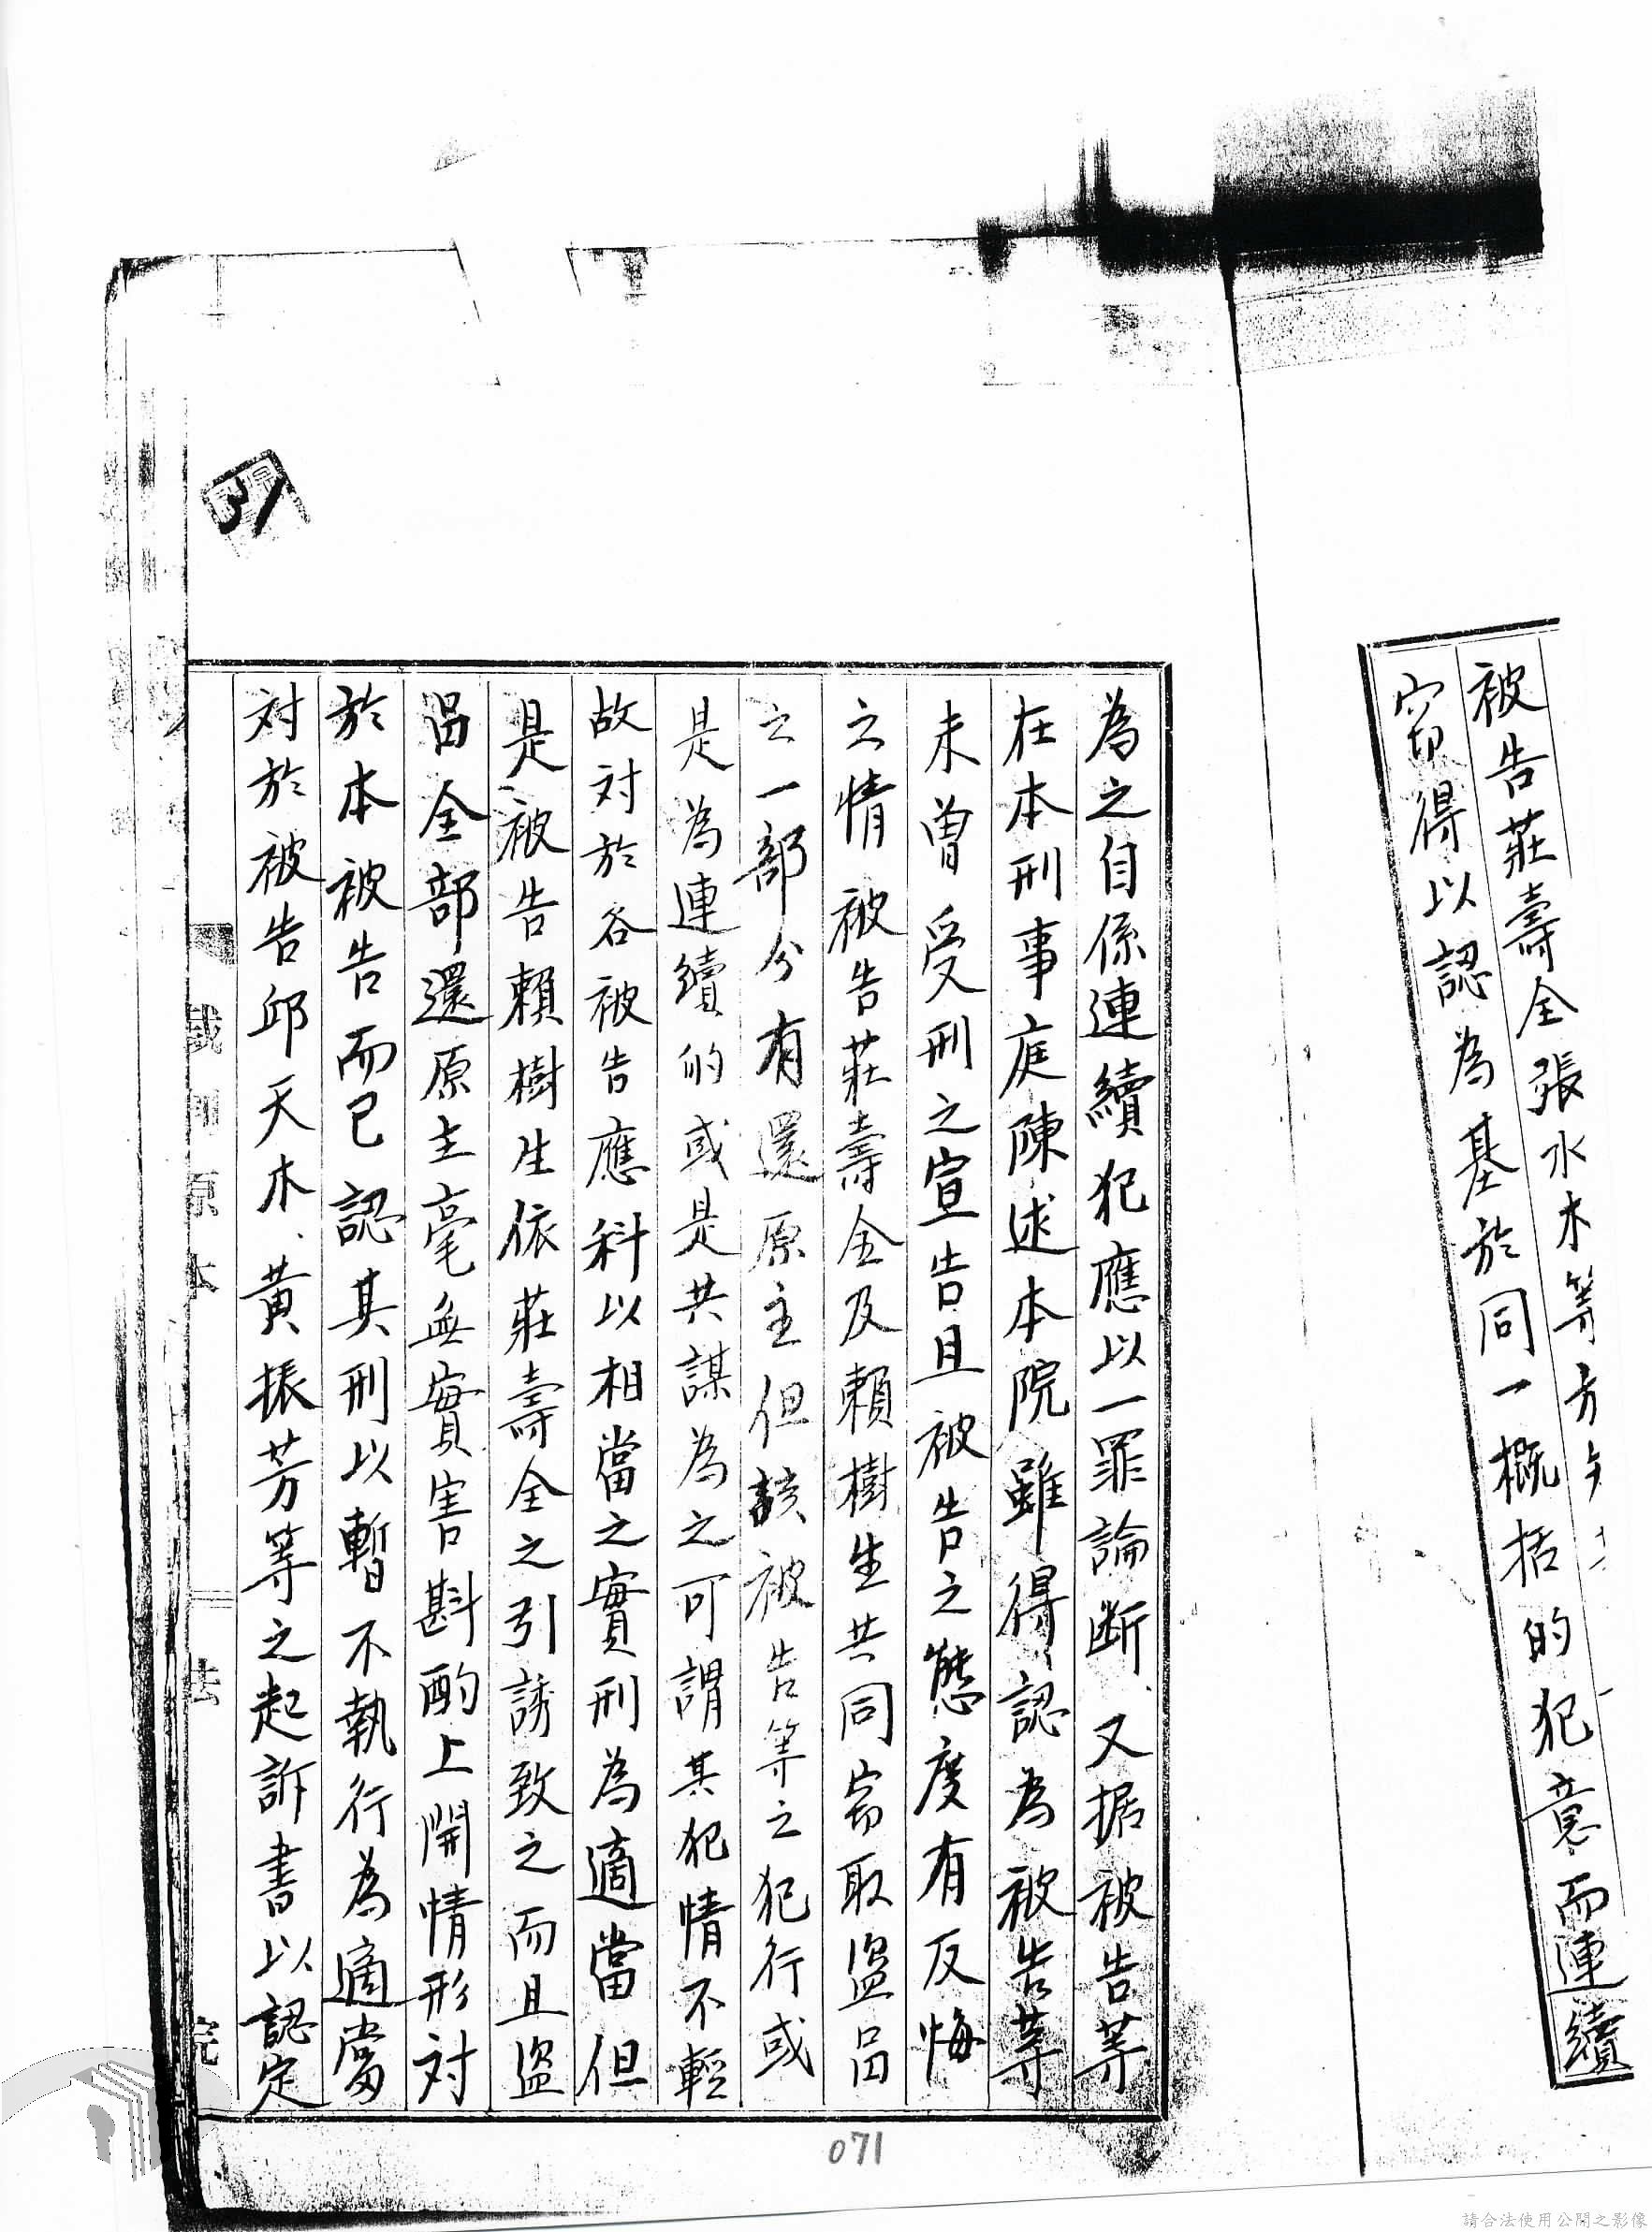 被告莊壽全張水木等方
窃得以認為基於同一概括的犯意而連續
為之自係連續犯應以一罪論断、又据被告等
在本刑事庭陳述本院雖得認為被告等
未曾受刑之宣告且被告之態度有反悔
之情被告莊壽全及賴樹生共同窃取盜品
之一部分有還原主但該被告等之犯行或
是為連續的或是共謀為之可謂其犯情不輕
故对於各被告應科以相當之實刑為適當但
是被告賴樹生依莊壽全之引誘致之而且盜
品全部還原主毫無實害斟酌上開情形対
於本被告而已認其刑以暫不執行為適當
対於被告邱天木、黃振芳等之起訴書以認定
裁判原本
法
院
31
071
請合法使用公開之影像